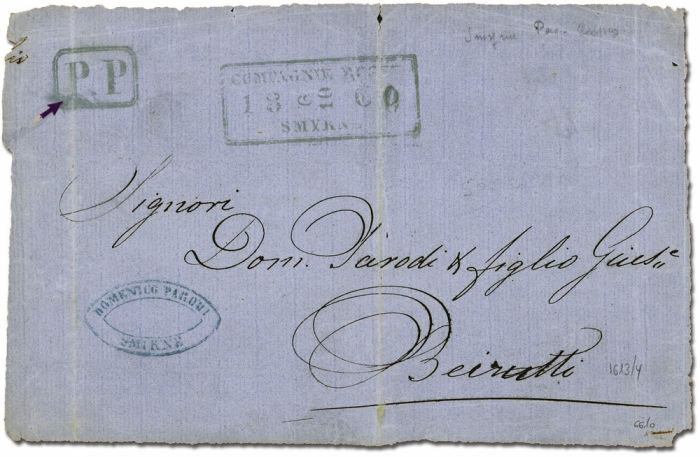 P.P
COMPAGNIE RUSSE
18 60
SMYRNE
Signori
Dom. Parodi & figlio Gius.e
Beirutti
DOMENICO PARODI
SMIRNE
1613/4